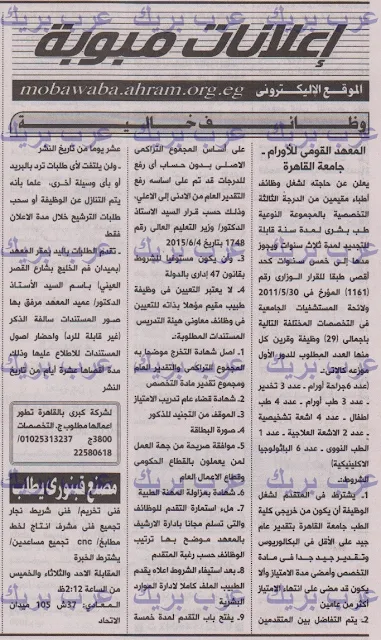 إعلانات مبوبة
الموقع الإليكترونى mobawaba.ahram.org.eg
وظائف خالية
المعهد القومى للأورام -
جامعة القاهرة
يعلن عن حاجته لشغل وظائف
أطباء مقيمين من الدرجة الثالثة
التخصصية بالمجموعة النوعية
طب بشرى لمدة سنة قابلة
للتجديد لمدة ثلاث سنوات ويجوز
مدها إلى خمس سنوات كحد
أقصى طبقا للقرار الوزارى رقم
(1161) المؤرخ فى 2011/5/30
ولائحة المستشفيات الجامعية
فى التخصصات المختلفة التالية
بإجمالى (29) وظيفة وقرين كل
منها العدد المطلوب للدور الأول
موزعه كالاتى:-
(عدد 6جراحة أورام - عدد 3 تخدير
- عدد 3 طب أورام - عدد 4 طب
اطفال - عدد 4 اشعة تشخيصية
- عدد 2 الاشعة العلاجية - عدد 1
الطب النووى - عدد 6 الباثولوجيا
الاكلينيكية)
الشروط:-
1. يشترط فى المتقدم لشغل
الوظيفة أن يكون من خريجى كلية
الطب جامعة القاهرة بتقدير عام
جيد على الأقل فى البكالوريوس
وتقدير جيد جدا فى مادة
التخصص وأمضى مدة الامتياز وألا
يكون قد مضى على انتهاء الامتياز
أكثر من عامين
2. يتم التفاضل بين المتقدمين
على أساس المجموع التراكمى
الاصلى بدون حساب أى رفع
للدرجات قد تم على اساسه رفع
التقدير العام من الادنى إلى الاعلى.
وذلك حسب قرار السيد الاستاذ
الدكتور/ وزير التعليم العالى رقم
1748 بتاريخ 2015/6/4
3- وأن يكون مستوفيا للشروط
بقانون 47 إدارى بالدولة
4. لا يعتبر التعيين فى وظيفة
طبيب مقيم مؤهلا بذاته للتعيين
فى وظائف معاونى هيئة التدريس
المستندات المطلوبة:-
1. اصل شهادة التخرج موضحا به
المجموع التراكمى والتقدير العام
ومجموع تقدير مادة التخصص
2. شهادة قضاء عام تدريب الامتياز
3. الموقف من التجنيد للذكور
4. صورة البطاقة
5. موافقة صريحة من جهة العمل
لمن يعملون بالقطاع الحكومى
وقطاع الاعمال العام
6. شهادة بمزاولة المهنة الطبية
7. ملء استمارة التقدم للوظائف
والتى تسلم مجانا بادارة الارشيف
بالمعهد موضح بها ترتيب
الوظائف حسب رغبة المتقدم
8. بعد استيفاء الشروط اعلاه يقدم
الطبيب الملف كاملا لادارة الموارد
البشرية
9. يفتح باب التقدم لمدة خمسة
عشر يوما من تاريخ النشر
- ولن يلتفت لأى طلبات ترد بالبريد
أو بأى وسيلة أخرى، علما بأنه
يتم التنازل عن الوظيفة أو سحب
طلبات الترشيح خلال مدة الاعلان
فقط
- تقدم الطلبات باليد بمقر المعهد
(بميدان فم الخليج بشارع القصر
العينى) باسم السيد الأستاذ
الدكتور/ عميد المعهد مرفق بها
صور المستندات سالفة الذكر
(غير قابلة للرد) واحضار اصول
المستندات للاطلاع عليها وذلك
مدة أقصاها عشرة أيام من تاريخ
النشر
لشركة كبرى بالقاهرة تطور
اعمالها مطلوب ج. التخصصات
3800ج /01025313237
22580618
مصنع فينورى يطلب
فنى تخريم/ فنى شريط نجار
تجميع فنى مشرف انتاج لخط
مطابخ/ cnc تجميع مساعدين/
يشترط الخبرة
المقابلة الاحد والثلاثاء والخميس
من الساعة 2:12ظ
المعادى: 37ش 105 ميدان
الاتحاد
عرب بريك